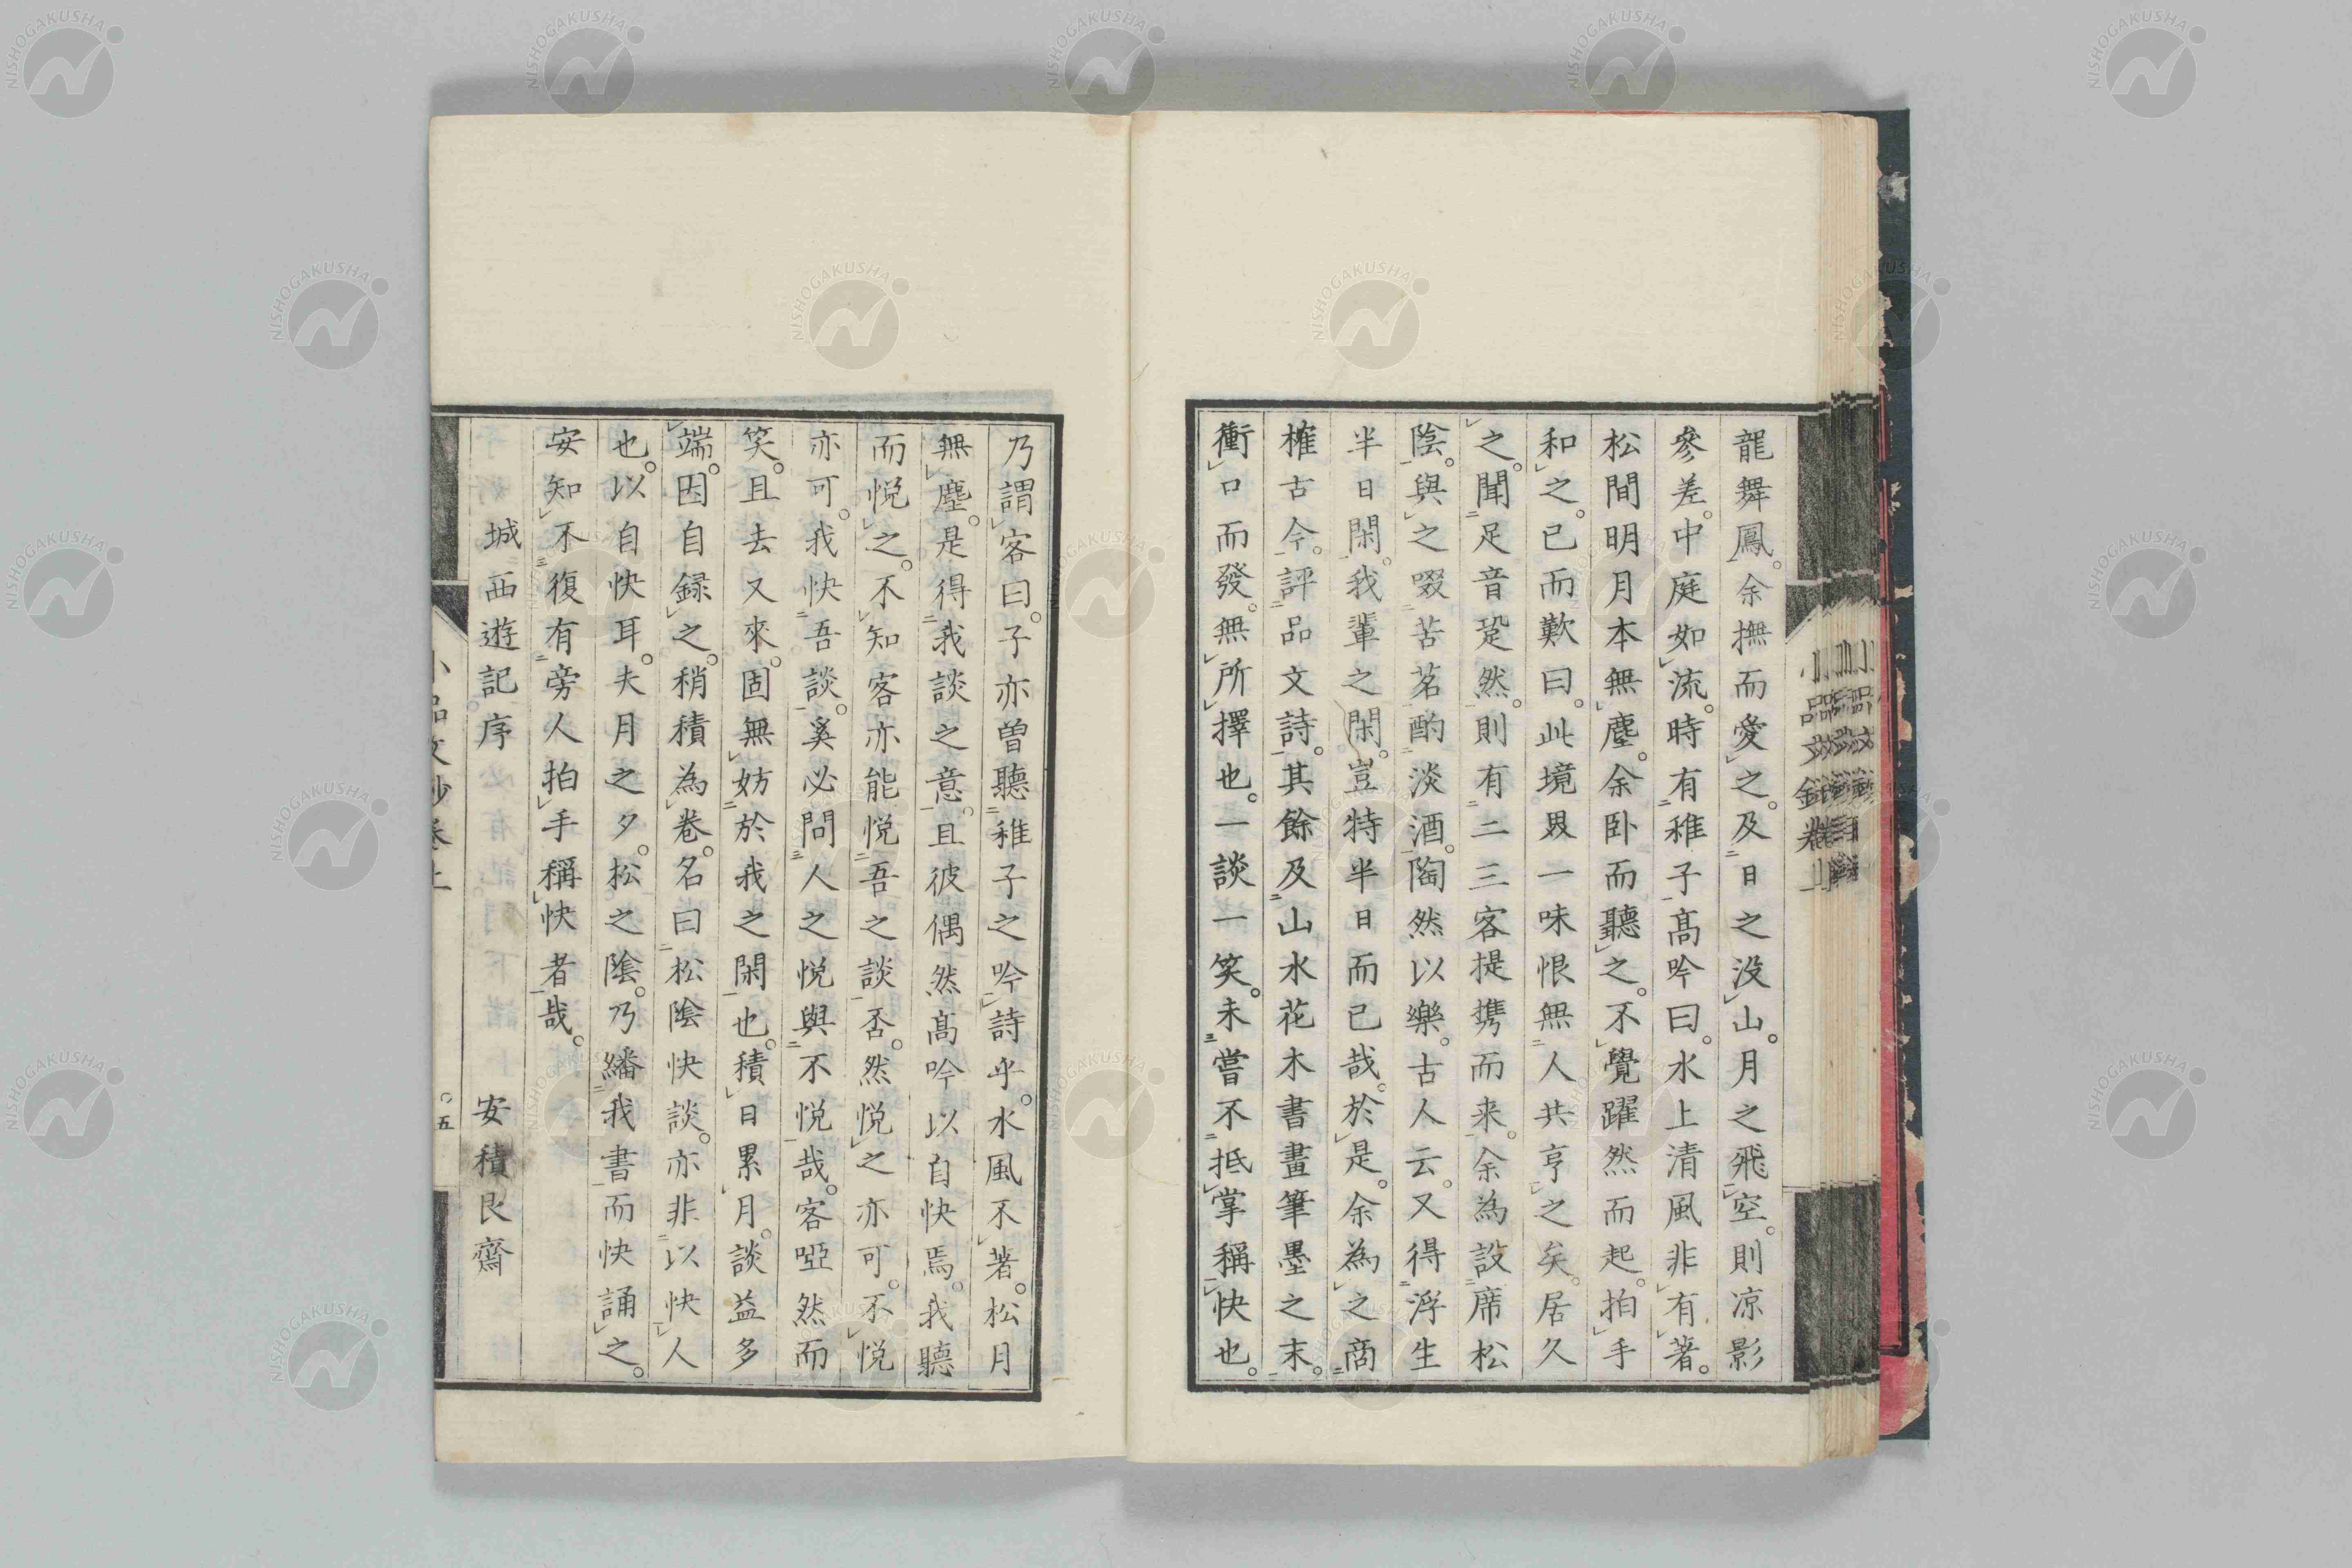 龍舞鳳。余撫而愛之。及日之没山。月之飛空。則凉影
參差。中庭如流。時有稚子高吟曰。水上清風非有著。
松間明月本無塵。余卧而聽之。不覺躍然而起。拍手
和之。已而歎曰。此境畀一味恨無人共享之矣。居久
之。聞足音跫然。則有二三客提携而来。余為設席松
陰。與之啜苦茗酌淡酒。陶然以樂。古人云。又得浮生
半日閑。我輩之閑。豈特半日而已哉。於是。余為之商
榷古今。評品文詩。其餘及山水花木書畫筆墨之末。
衝口而發。無所擇也。一談一笑。未嘗不抵掌稱快也。
乃謂客曰。子亦曽聽稚子之吟詩乎。水風不著。松月
無塵。是得我談之意。且彼偶然高吟以自快焉。我聽
而悦之。不知客亦能悦吾之談否。然悦之亦可。不悦
亦可。我快吾談。奚必問人之悦與不悦哉。客啞然而
笑。且去又來。固無妨於我之閑也。積日累月。談益多
端。因自録之。稍積為卷。名曰松陰快談。亦非以快人
也。以自快耳。夫月之夕。松之陰。乃繙我書而快誦之。
安知不復有旁人拍手稱快者哉。
城西遊記序 安積艮齋
小品文鈔卷上
五
NISHOGAKUSHA